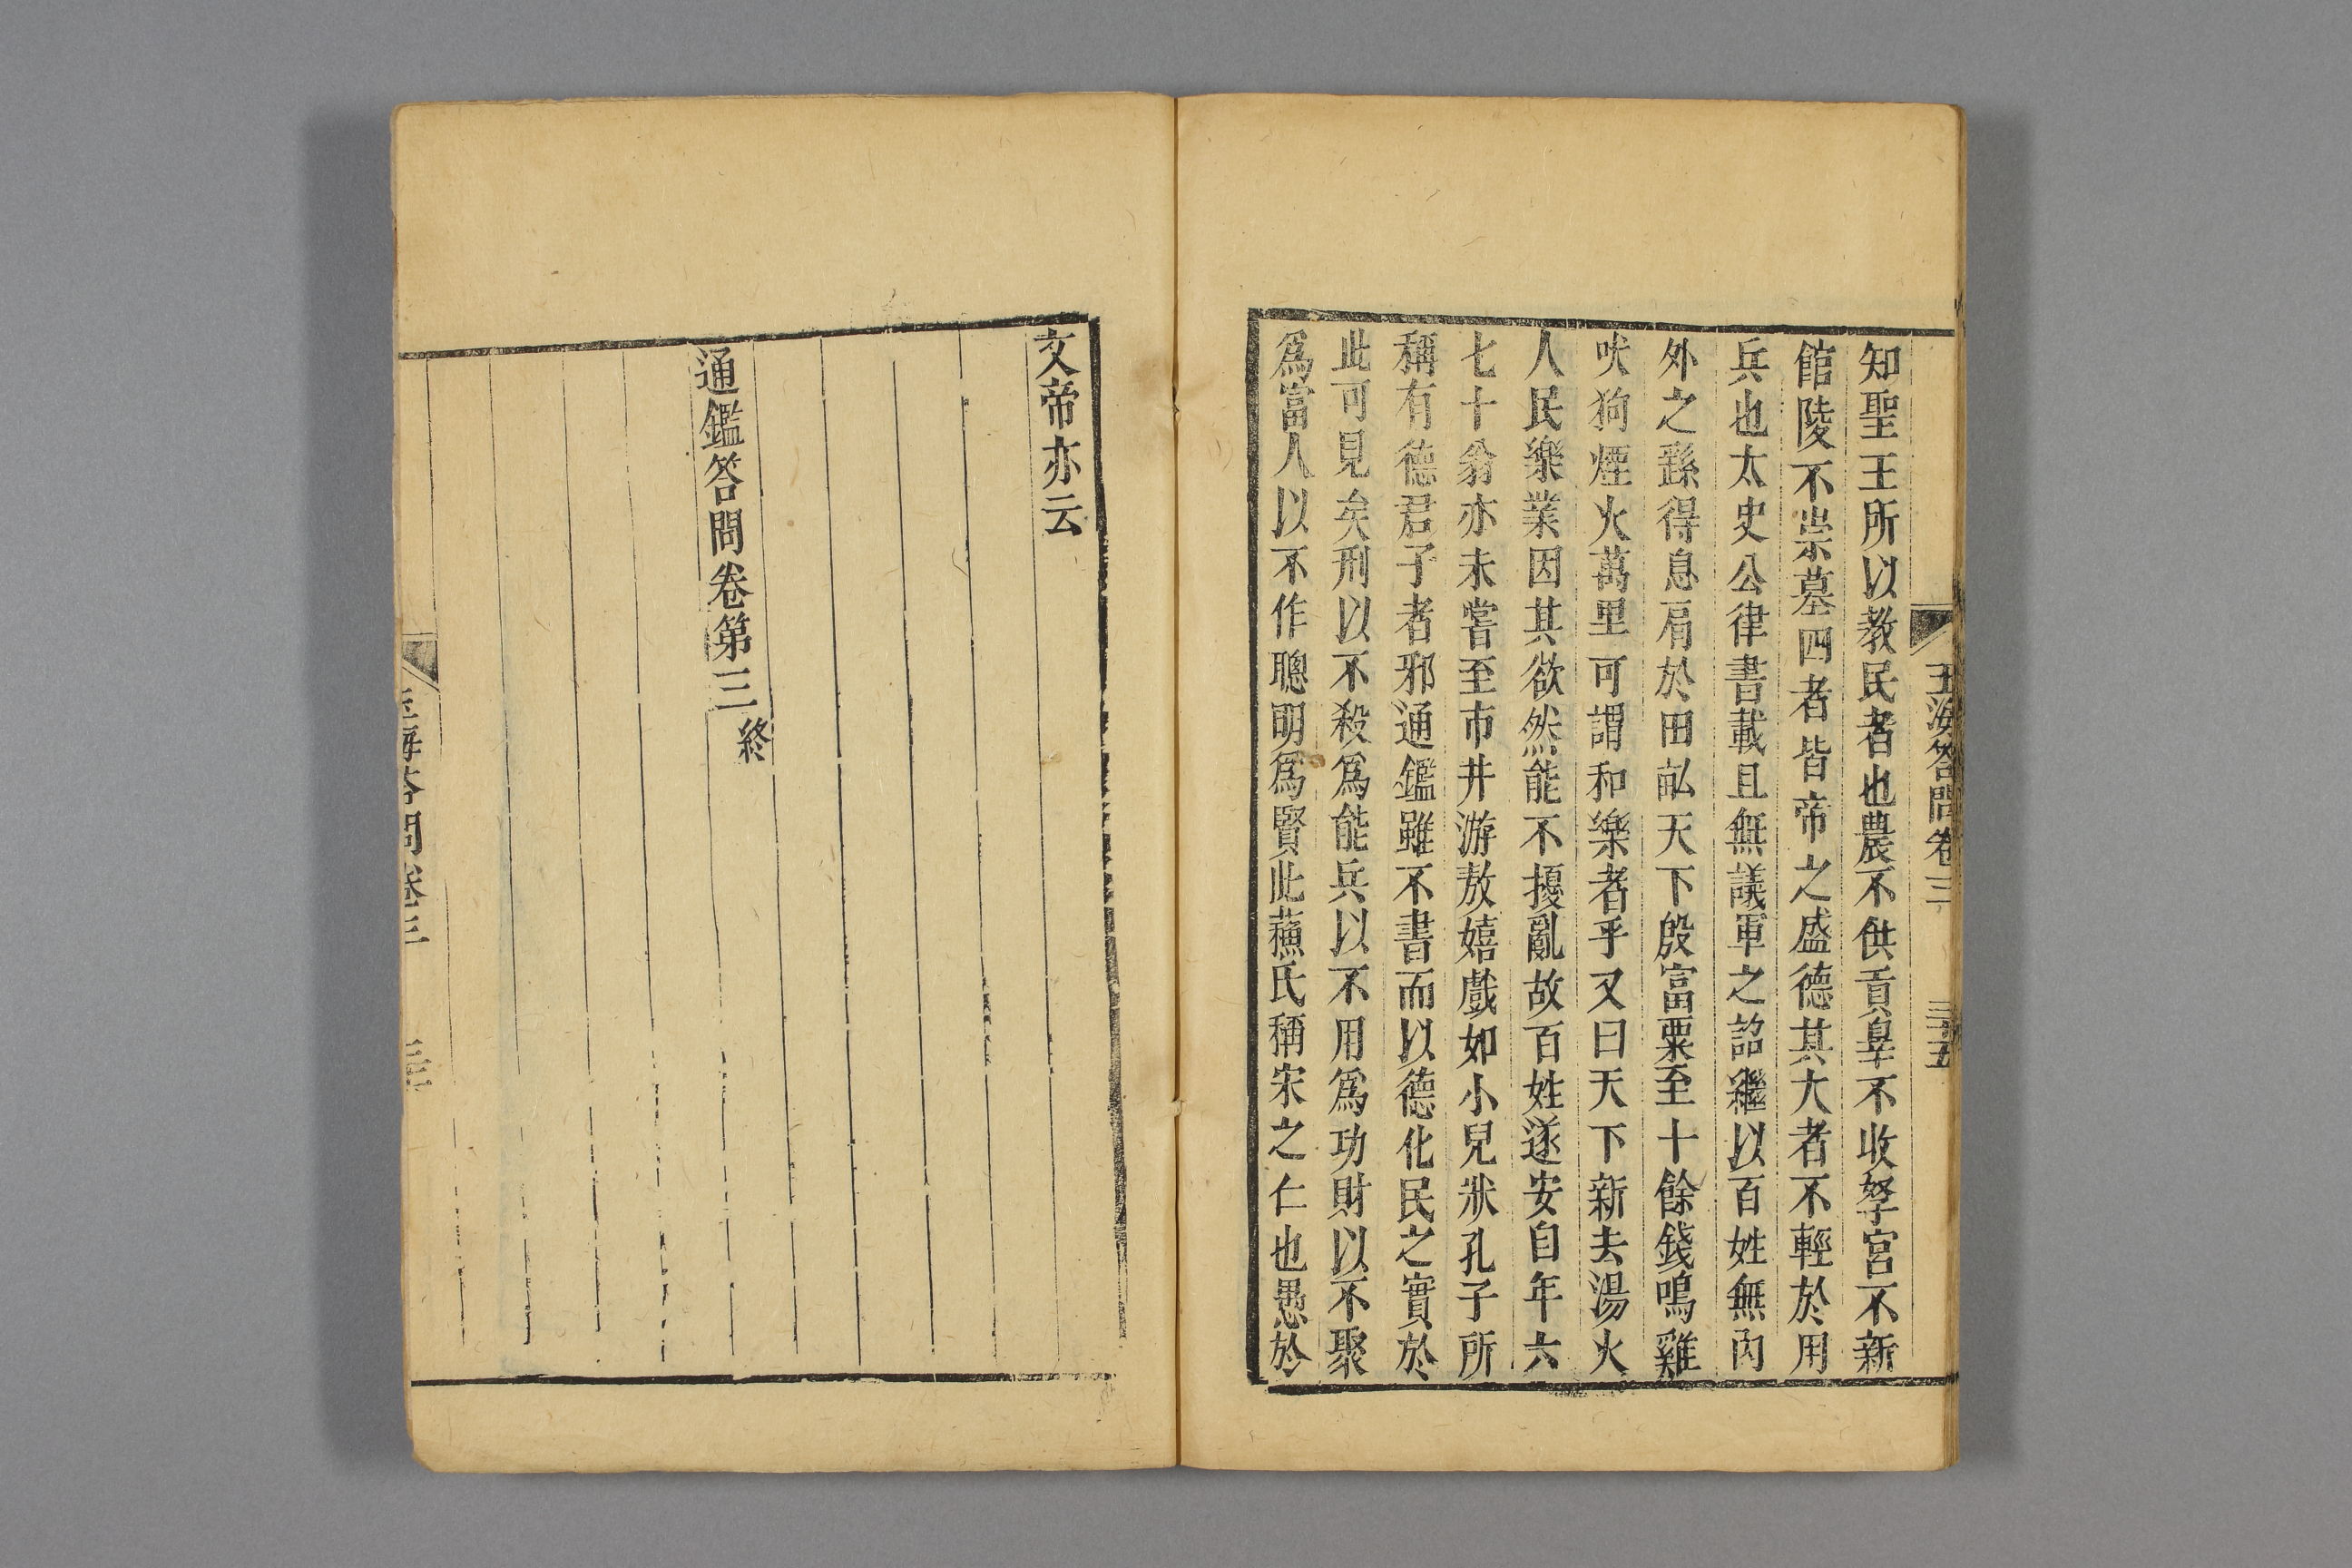 玉海答問卷三 三十五
知聖王所以教民者也農不供貢辠不收孥宮不新
館陵不崇墓四者皆帝之盛德其大者不輕於用
兵也太史公律書載且無議軍之詔繼以百姓無內
外之繇得息肩於田畝天下殷富粟至十餘錢鳴雞
吠狗煙火萬里可謂和樂者乎又曰天下新去湯火
人民樂業因其欲然能不擾亂故百姓遂安自年六
七十翁亦未嘗至市井游敖嬉戲如小兒狀孔子所
稱有德君子者邪通鑑雖不書而以德化民之實於
此可見矣刑以不殺爲能兵以不用爲功財以不聚
爲富人以不作聰明爲賢此蘓氏稱宋之仁也愚於
文帝亦云
通鑑答問卷第三終
玉海答問卷三